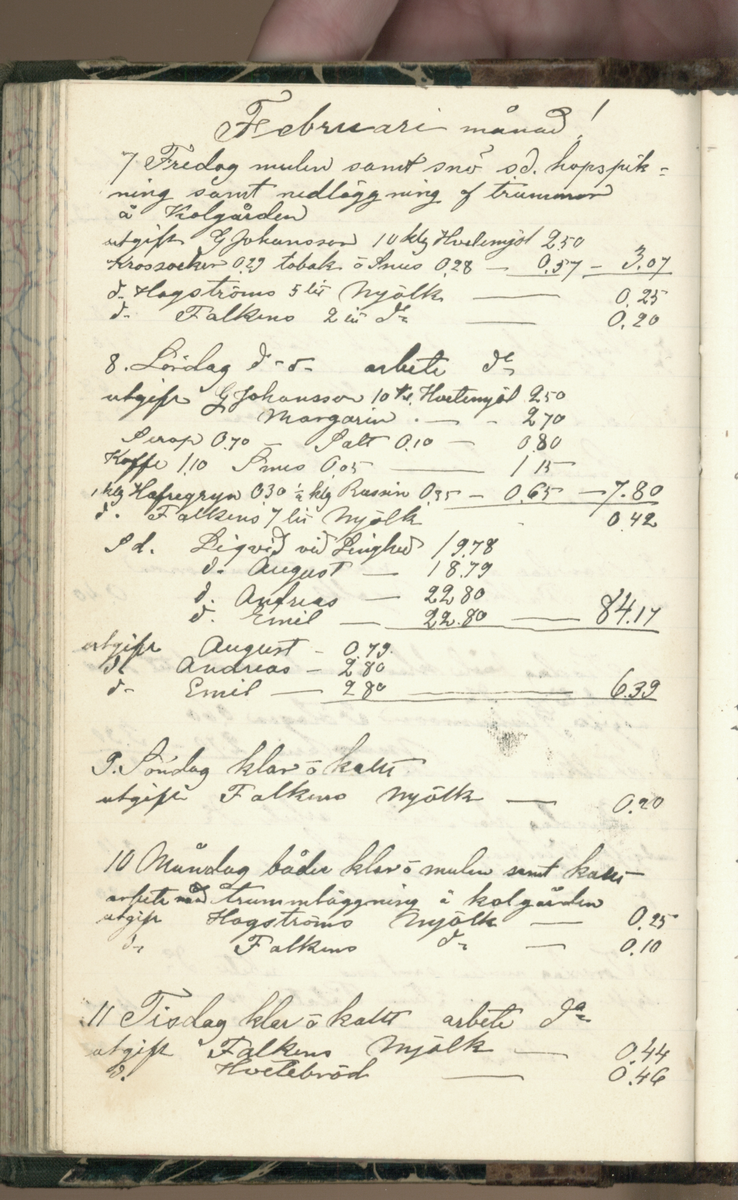 Februari månad!
7 Fredag mulen samt snö sd. hopspik=
ning samt nedläggning af trummor
å Kolgården
utgift G Johansson 10 klg Hvetemjöl 2.50
Krossocker 0.29 tobak ö Snus 0.28 — 0.57 — 3.07
d- Hagströms 5 lit Mjölk — 0.25
d- Falkens 2 lit do — 0.20
8. Lördag d-o- arbete do
utgift G Johansson 10 K. Hvetemjöl 2.50
Margarin — 2.70
Sirap 0.70 — Salt 0.10 — 0.80
Kaffe 1.10 Snus 0.05 — 1.15
1 klg Hafregryn 0.30 ½ klg Russin 0.35 — 0.65 — 7.80
d. Falkens 7 lit Mjölk 0.42
Sd. Liqvid vid Linghed 19.78
d. August — 18.79
d. Andreas — 22.80
d. Emil — 22.80 — 84.17
utgift August — 0.79.
d Andreas — 2.80
d- Emil — 2.80 — 6.39
9. Söndag klar ö kallt
utgift Falkens Mjölk — 0.20
10 Måndag både klar ö mulen samt kallt
arbete med trummläggning å kolgården
utgift Hagströms Mjölk — 0.25
d- Falkens d- — 0.10
11 Tisdag klar ö kallt arbete do
utgift Falkens Mjölk — 0.44
d. Hvetebröd — 0.46